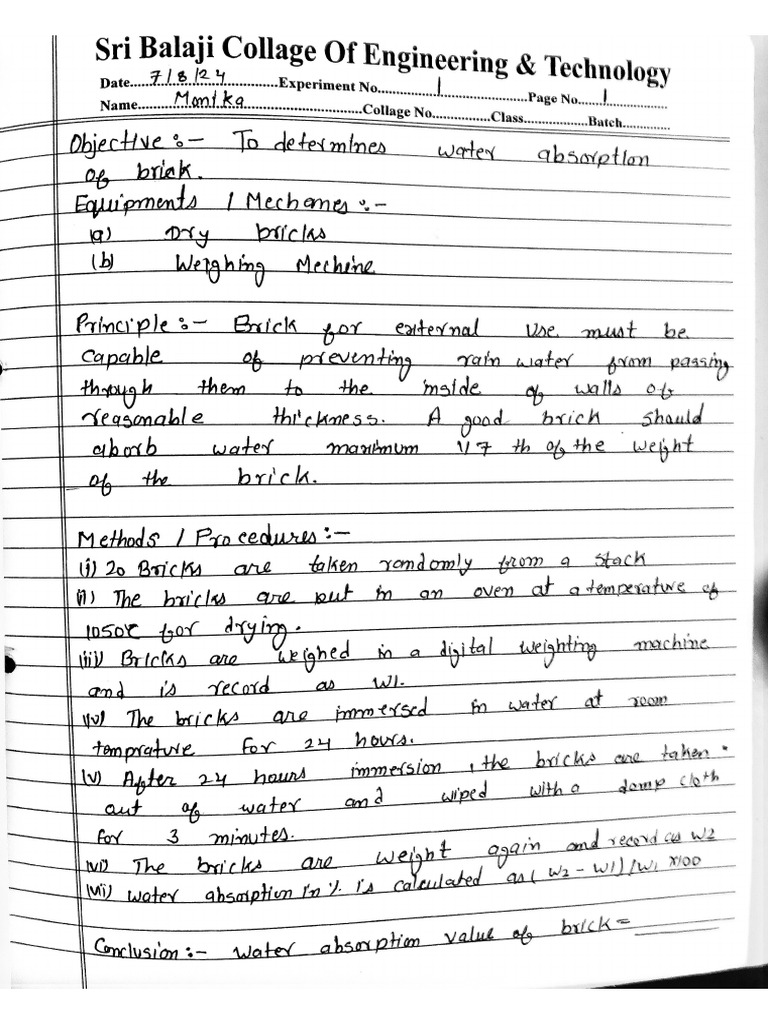 Sri Balaji Collage Of Engineering & Technology
Date.....7/8/24.....Experiment No.....1.....Page No.....1.....
Name.....Monika.....Collage No.....Class.....Batch.....
Objective :- To determines water absorption
of brick.
Equipments / Mechanes :-
(a) Dry bricks
(b) Weighing Mechine
Principle :- Brick for external use must be
capable of preventing rain water from passing
through them to the inside of walls of
reasonable thickness. A good brick should
aborb water maximum 1/7 th of the weight
of the brick.
Methods / Procedures :-
(i) 20 Bricks are taken randomly from a stack
(ii) The bricks are put in an oven at a temperature of
1050c for drying.
(iii) Bricks are weighed in a digital weighting machine
and is record as W1.
(iv) The bricks are immersed in water at room
temprature for 24 hours.
(v) After 24 hours immersion, the bricks are taken
out of water and wiped with a damp cloth
for 3 minutes.
(vi) The bricks are weight again and record as W2
(vii) water absorption in % is calculated as (W2 - W1)/W1 x100
Conclusion :- water absorption value of brick = ______